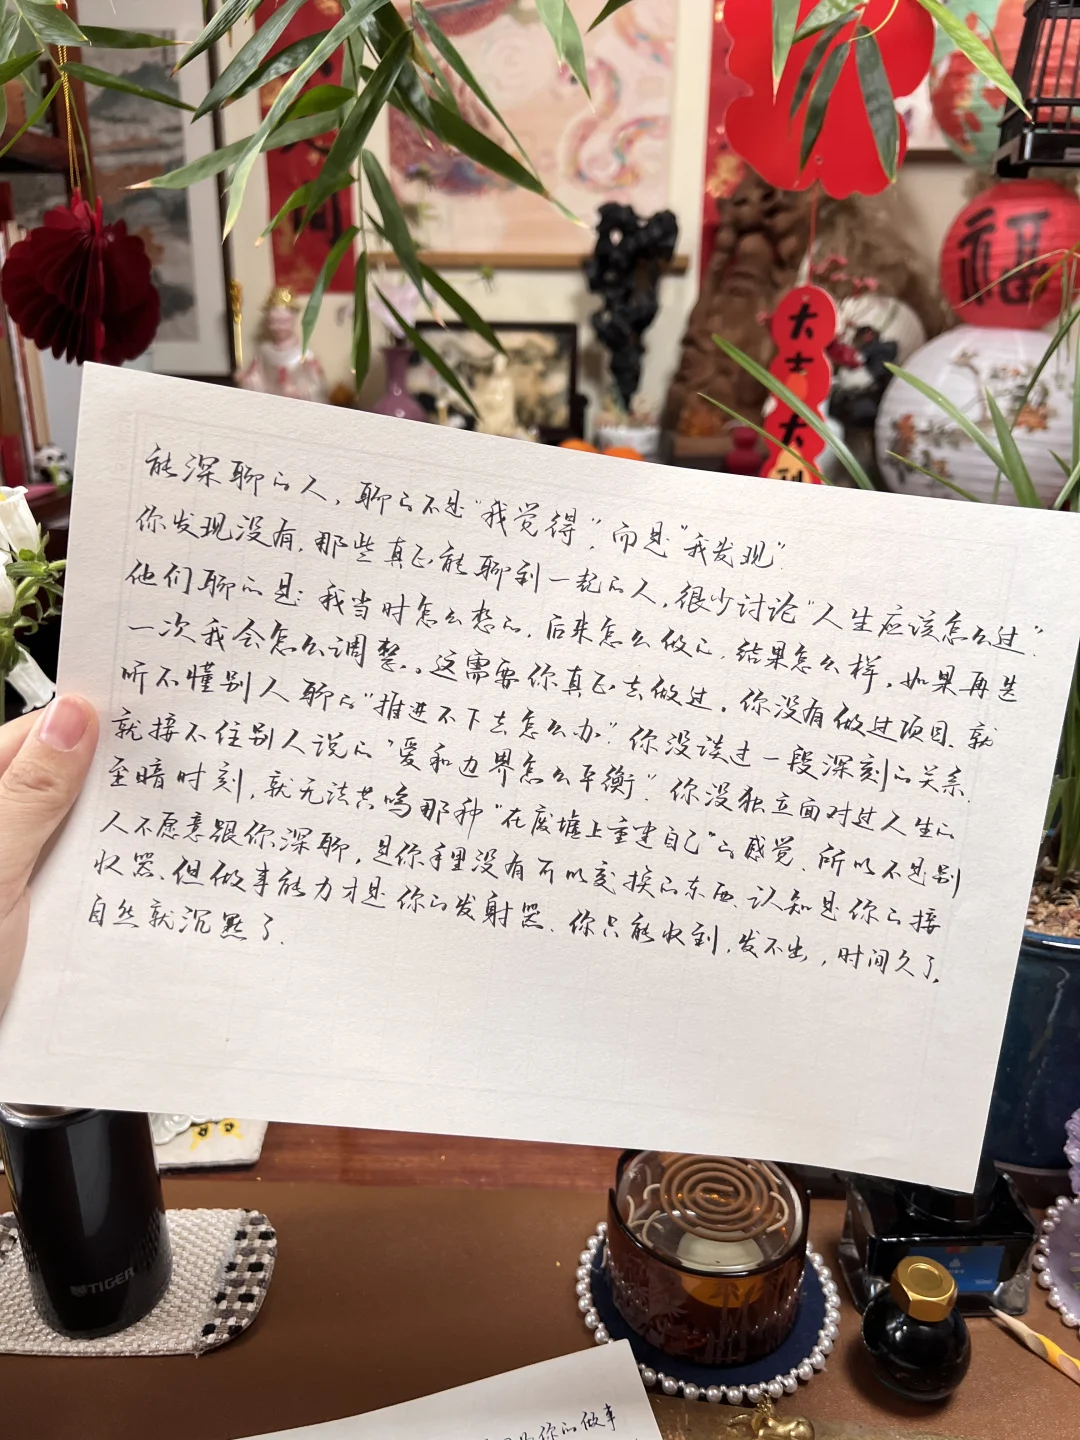 福
大吉大利
能深聊的人，聊的不是“我觉得”，而是“我发现”.
你发现没有，那些真正能聊到一起的人，很少讨论“人生应该怎么过”.
他们聊的是：我当时怎么想的，后来怎么做的，结果怎么样，如果再选
一次我会怎么调整。这需要你真正去做过。你没有做过项目、就
听不懂别人聊的“推进不下去怎么办”. 你没谈过一段深刻的关系.
就接不住别人说的“爱和边界怎么平衡”. 你没独立面对过人生的
至暗时刻，就无法共鸣那种“在废墟上重建自己”的感觉. 所以不是别
人不愿意跟你深聊，是你手里没有可以交换的东西、认知是你的接
收器、但做事能力才是你的发射器. 你只能收到，发不出，时间久了，
自然就沉默了.
TIGER
你的做事